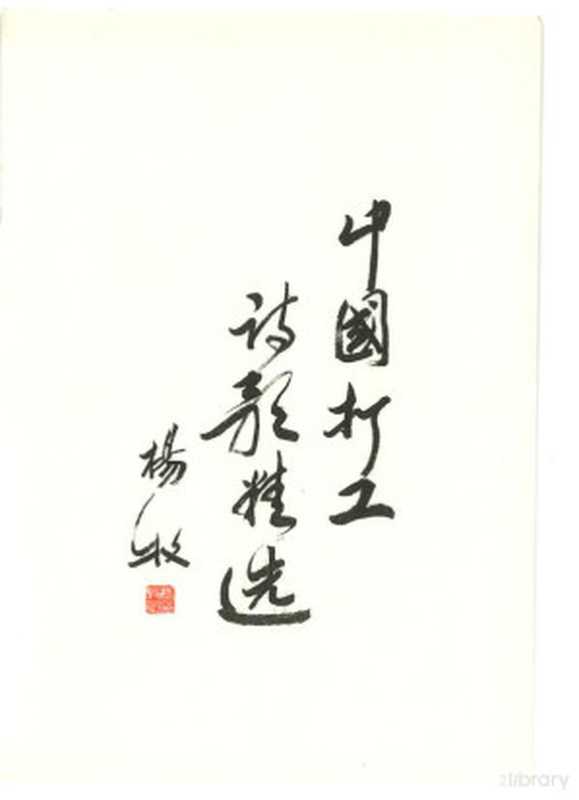 中國打工
诗歌精选
楊牧
zlibrary